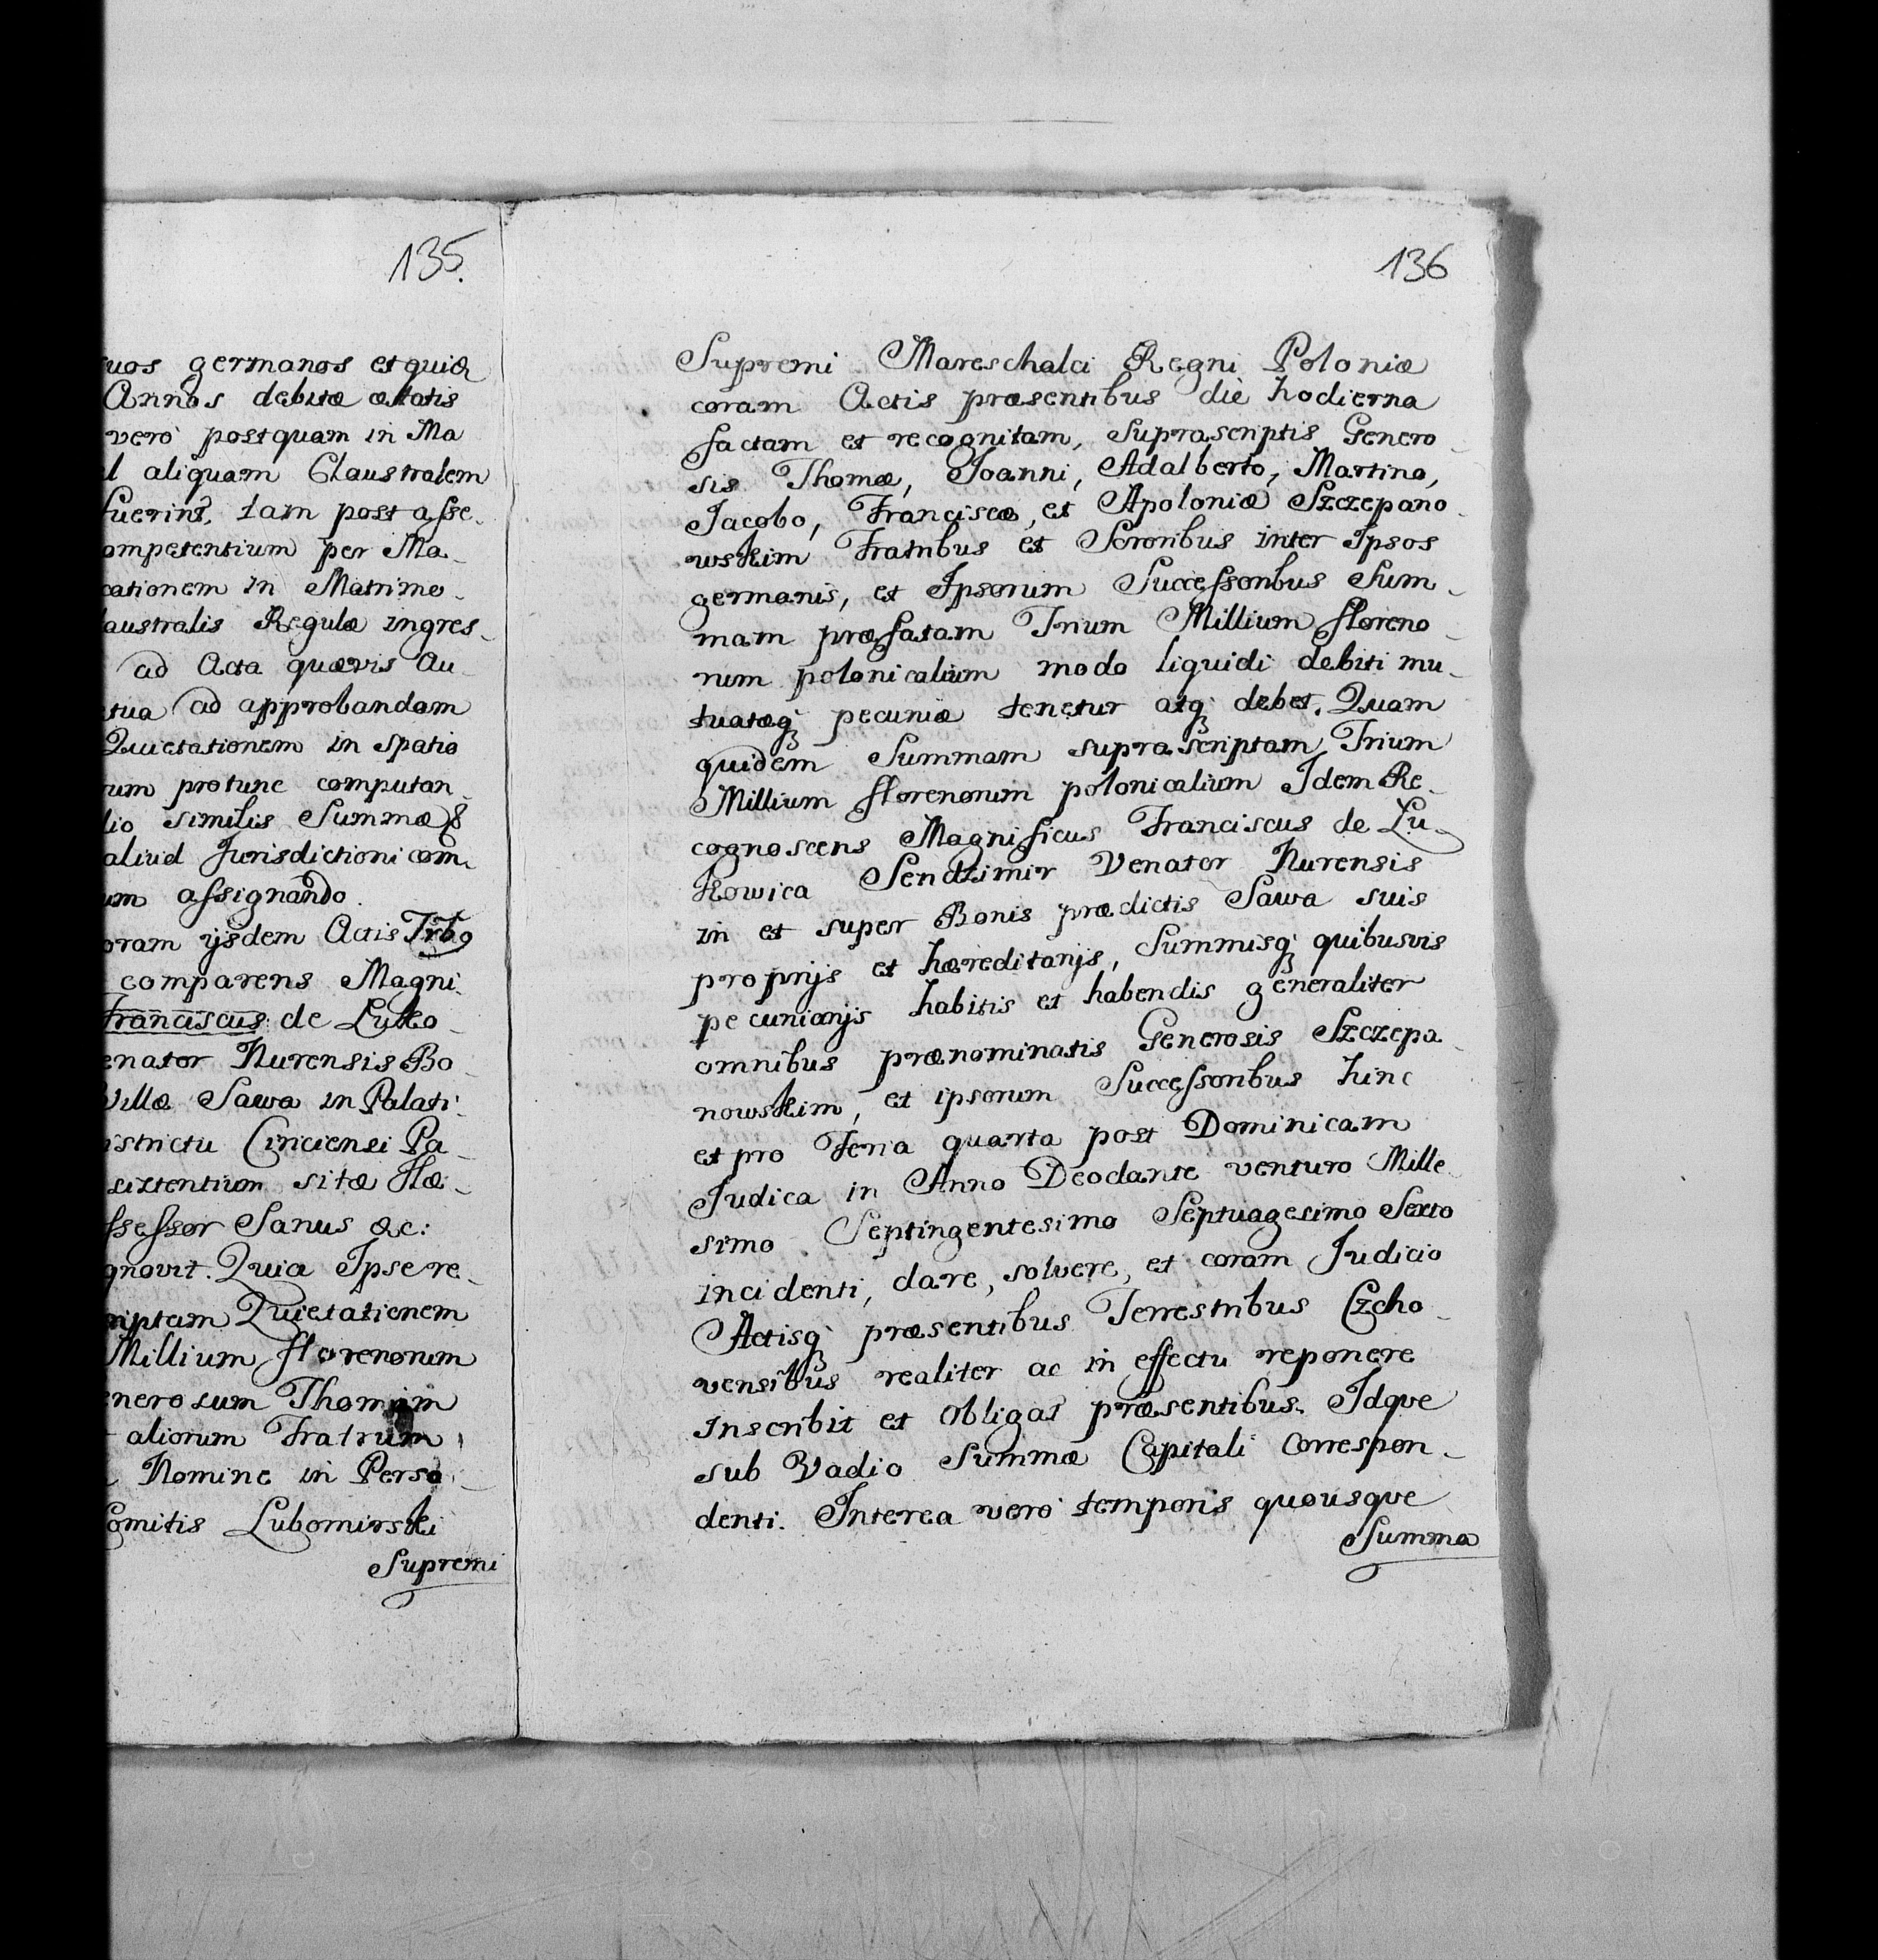 135.
uos germanos et quia
Annos debitæ ætatis
verò postquam in Ma
l aliquam Claustralem
fuerint, tam post asse-
ompetentium per Ma-
cationem in Matrimo-
laustralis Regulæ ingres-
ad Acta quævis Au-
ctua ad approbandam
Quietationem in spatio
rum protunc computan-
dio similis Summæ &
aliud Jurisdictioni com-
um assignando.
oram ijsdem Actis
comparens Magni-
Franciscus de Lubo-
enator Nurensis Bo-
Villæ Sawa in Palati-
istrictu Circiensi Pa-
sixtentium sitæ Hæ-
ssessor Sanus &c:
gnovit. Quia Ipse re-
riptam Quietationem
Millium florenorum
enerosum Thomam
aliorum Fratrum
Nomine in Perso-
Comitis Lubomirski
Supremi
136
Supremi Mareschalci Regni Poloniæ
coram Actis præsentibus diè hodierna
factam et recognitam, suprascriptis Genero-
sis Thomæ, Joanni, Adalberto, Martino,
Jacobo, Franciscæ, et Apoloniæ Szczepano-
wskim Fratribus et Sororibus inter Ipsos
germanis, et Ipsorum Successoribus Sum-
mam præfatam Trium Millium floreno-
rum polonicalium modo liquidi debiti mu-
tuatæq; pecuniæ tenetur atq; debet. Quam
quidem Summam suprascriptam Trium
Millium florenorum polonicalium Idem Re-
cognoscens Magnificus Franciscus de Lu-
kowica Sendzimir Venator Nurensis
in et super Bonis prædictis Sawa suis
proprijs et hæreditarijs, Summisq; quibusvis
pecuniarijs habitis et habendis generaliter
omnibus prænominatis Generosis Szczepa-
nowskim, et ipsorum Successoribus hinc
et pro Feria quarta post Dominicam
Judica in Anno Deodante venturo Mille-
simo Septingentesimo Septuagesimo Sexto
incidenti, dare, solvere, et coram Judicio
Actisq; præsentibus Terrestribus Czcho-
vensibus realiter ac in effectu reponere
inscribit et obligat præsentibus. Idque
sub Vadio Summæ Capitali correspon-
denti. Interea verò temporis quousque
Summa